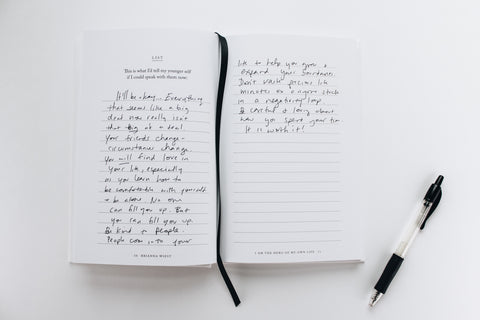 LIST
This is what I'd tell my younger self
if I could speak with them now:
It'll be okay. Everything
that seems like a big
deal now really isn't
that big of a deal.
Your friends change -
circumstances change.
You will find love in
your life, especially
as you learn how to
be comfortable with yourself
& be alone. No one
can fill you up. But
you can fill you up.
Be kind to people.
People come into your
30 BRIANNA WIEST
life to help you grow &
expand your
Don't waste precious life
minutes on a
in a negativity loop.
Be careful & loving about
how you spend your time
It is worth it!
I AM THE HERO OF MY OWN LIFE 31